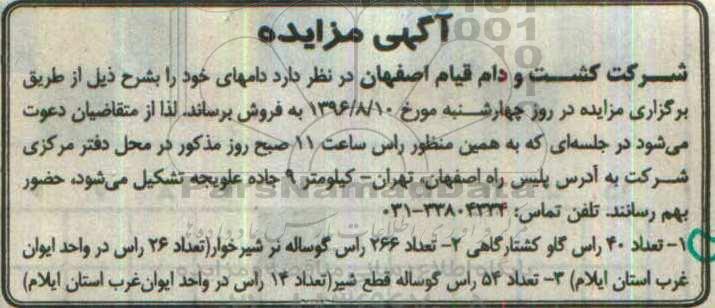 آگهی مزایده
شرکت کشت و دام قیام اصفهان در نظر دارد دامهای خود را بشرح ذیل از طریق
برگزاری مزایده در روز چهارشنبه مورخ ۱۳۹۶/۸/۱۰ به فروش برساند. لذا از متقاضیان دعوت
می‌شود در جلسه‌ای که به همین منظور راس ساعت ۱۱ صبح روز مذکور در محل دفتر مرکزی
شرکت به آدرس پلیس راه اصفهان، تهران- کیلومتر ۹ جاده علویجه تشکیل می‌شود، حضور
بهم رسانند. تلفن تماس: ۳۳۸۰۴۳۳۴-۰۳۱
۱- تعداد ۴۰ راس گاو کشتارگاهی ۲- تعداد ۲۶۶ راس گوساله نر شیرخوار(تعداد ۲۶ راس در واحد ایوان
غرب استان ایلام) ۳- تعداد ۵۴ راس گوساله قطع شیر(تعداد ۱۴ راس در واحد ایوان‌غرب استان ایلام)